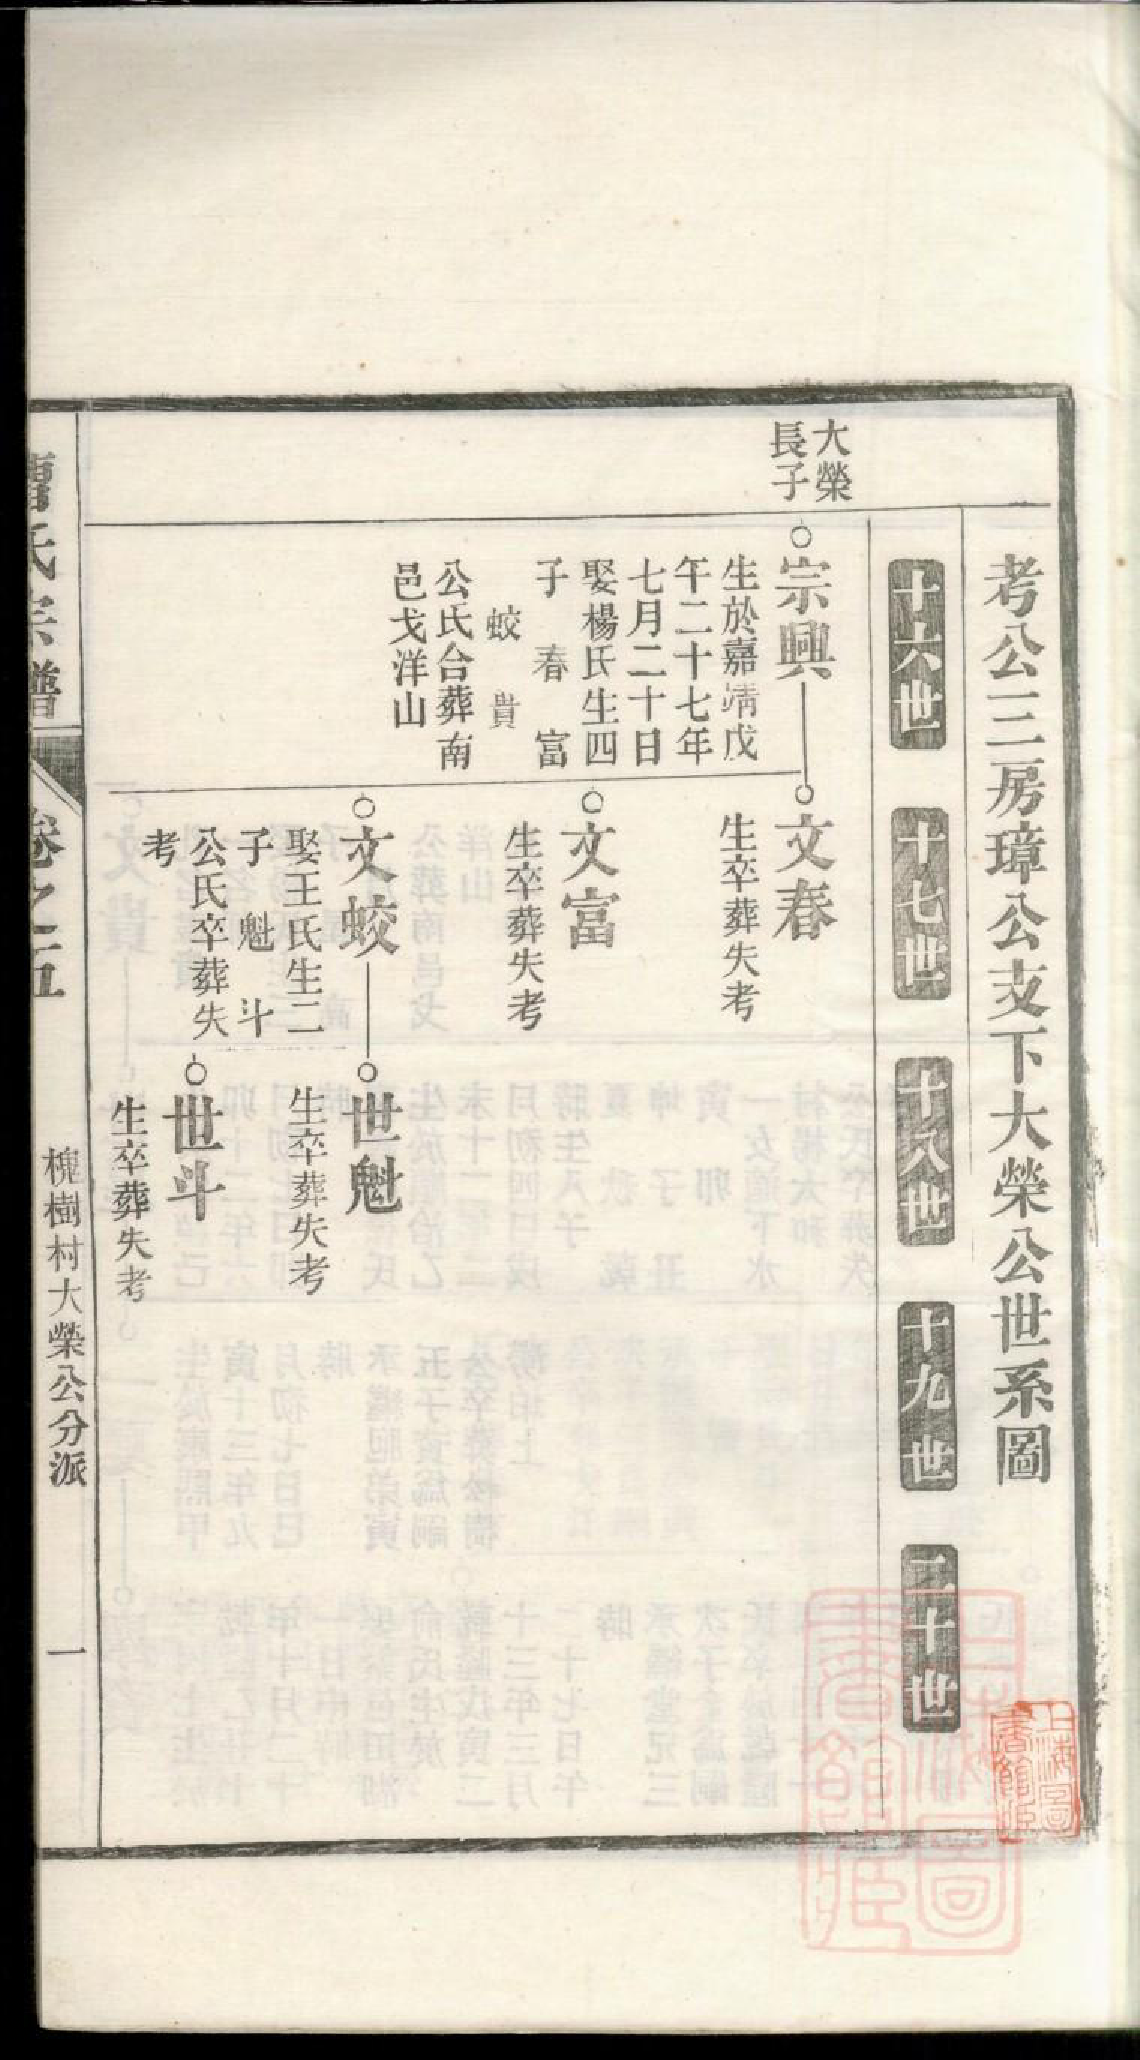 考公三房璋公支下大榮公世系圖
十六世
十七世
十八世
十九世
二十世
大榮
長子
宗興
生於嘉靖戊
午二十七年
七月二十日
娶楊氏生四
子 春 富
蛟 貴
公氏合葬南
邑戈洋山
文春
生卒葬失考
文富
生卒葬失考
文蛟
娶王氏生二
子 魁 斗
公氏卒葬失
考
世魁
生卒葬失考
世斗
生卒葬失考
氏宗譜
卷之五
槐樹村大榮公分派
一
上海圖
書館藏
上海圖
書館藏